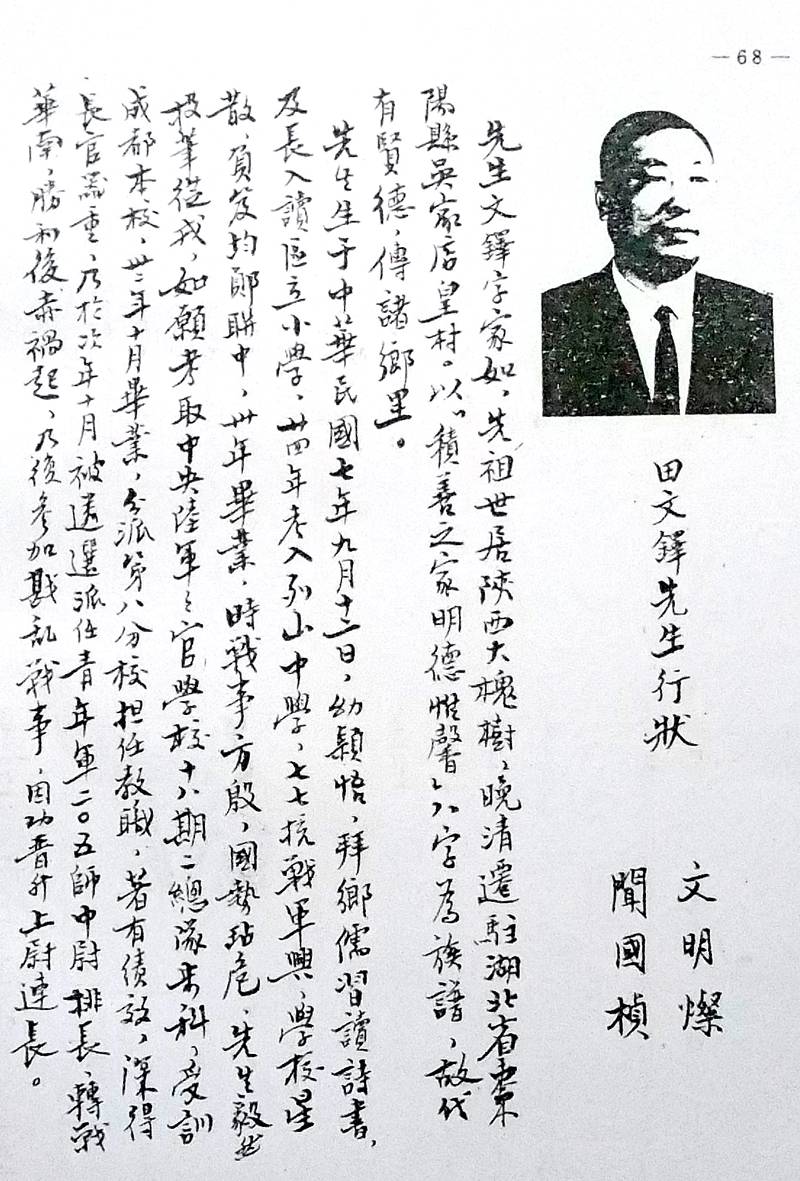 —68—
田文鐸先生行狀
文明燦
聞國楨
先生文鐸字家如，先祖世居陝西大槐樹，晚清遷駐湖北省棗
陽縣吳家店皇村。以“積善之家明德惟馨”八字為族譜，故代
有賢德，傳諸鄉里。
先生生于中華民國七年九月十二日，幼穎悟，拜鄉儒習讀詩書，
及長入讀區立小學，廿四年考入列山中學，七七抗戰軍興，學校星
散，負笈均鄖聯中，卅年畢業，時戰事方殷，國勢玷危，先生毅然
投筆從戎，如願考取中央陸軍々官學校十八期二總隊步科，受訓
成都本校，卅二年十月畢業，分派第八分校担任教職，著有績效，深得
長官器重，乃於次年十月被遴選派任青年軍二〇五師中尉排長，轉戰
華南，勝利後赤禍起，乃復參加戡乱戰事，因功晉升上尉連長。